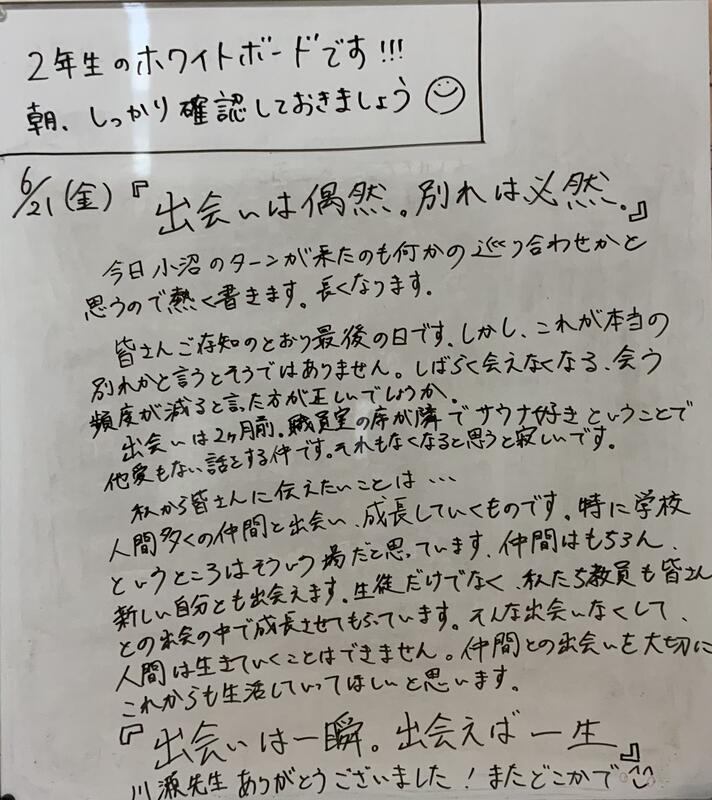 2年生のホワイトボードです!!!
朝、しっかり確認しておきましょう
6/21(金)『出会いは偶然。別れは必然。』
今日小沼のターンが来たのも何かの巡り合わせかと
思うので熱く書きます。長くなります。
皆さんご存知のとおり最後の日です。しかし、これが本当の
別れかと言うとそうではありません。しばらく会えなくなる、会う
頻度が減ると言った方が正しいでしょうか。
出会いは2ヶ月前。職員室の席が隣でサウナ好きということで
他愛もない話をする仲です。それもなくなると思うと寂しいです。
私から皆さんに伝えたいことは…
人間多くの仲間と出会い、成長していくものです。特に学校
というところはそういう場だと思っています。仲間はもちろん、
新しい自分とも出会えます。生徒だけでなく、私たち教員も皆さん
との出会の中で成長させてもらっています。そんな出会いなくして、
人間は生きていくことはできません。仲間との出会いを大切に
これからも生活していってほしいと思います。
『出会いは一瞬。出会えば一生』
川源先生ありがとうございました！またどこかで